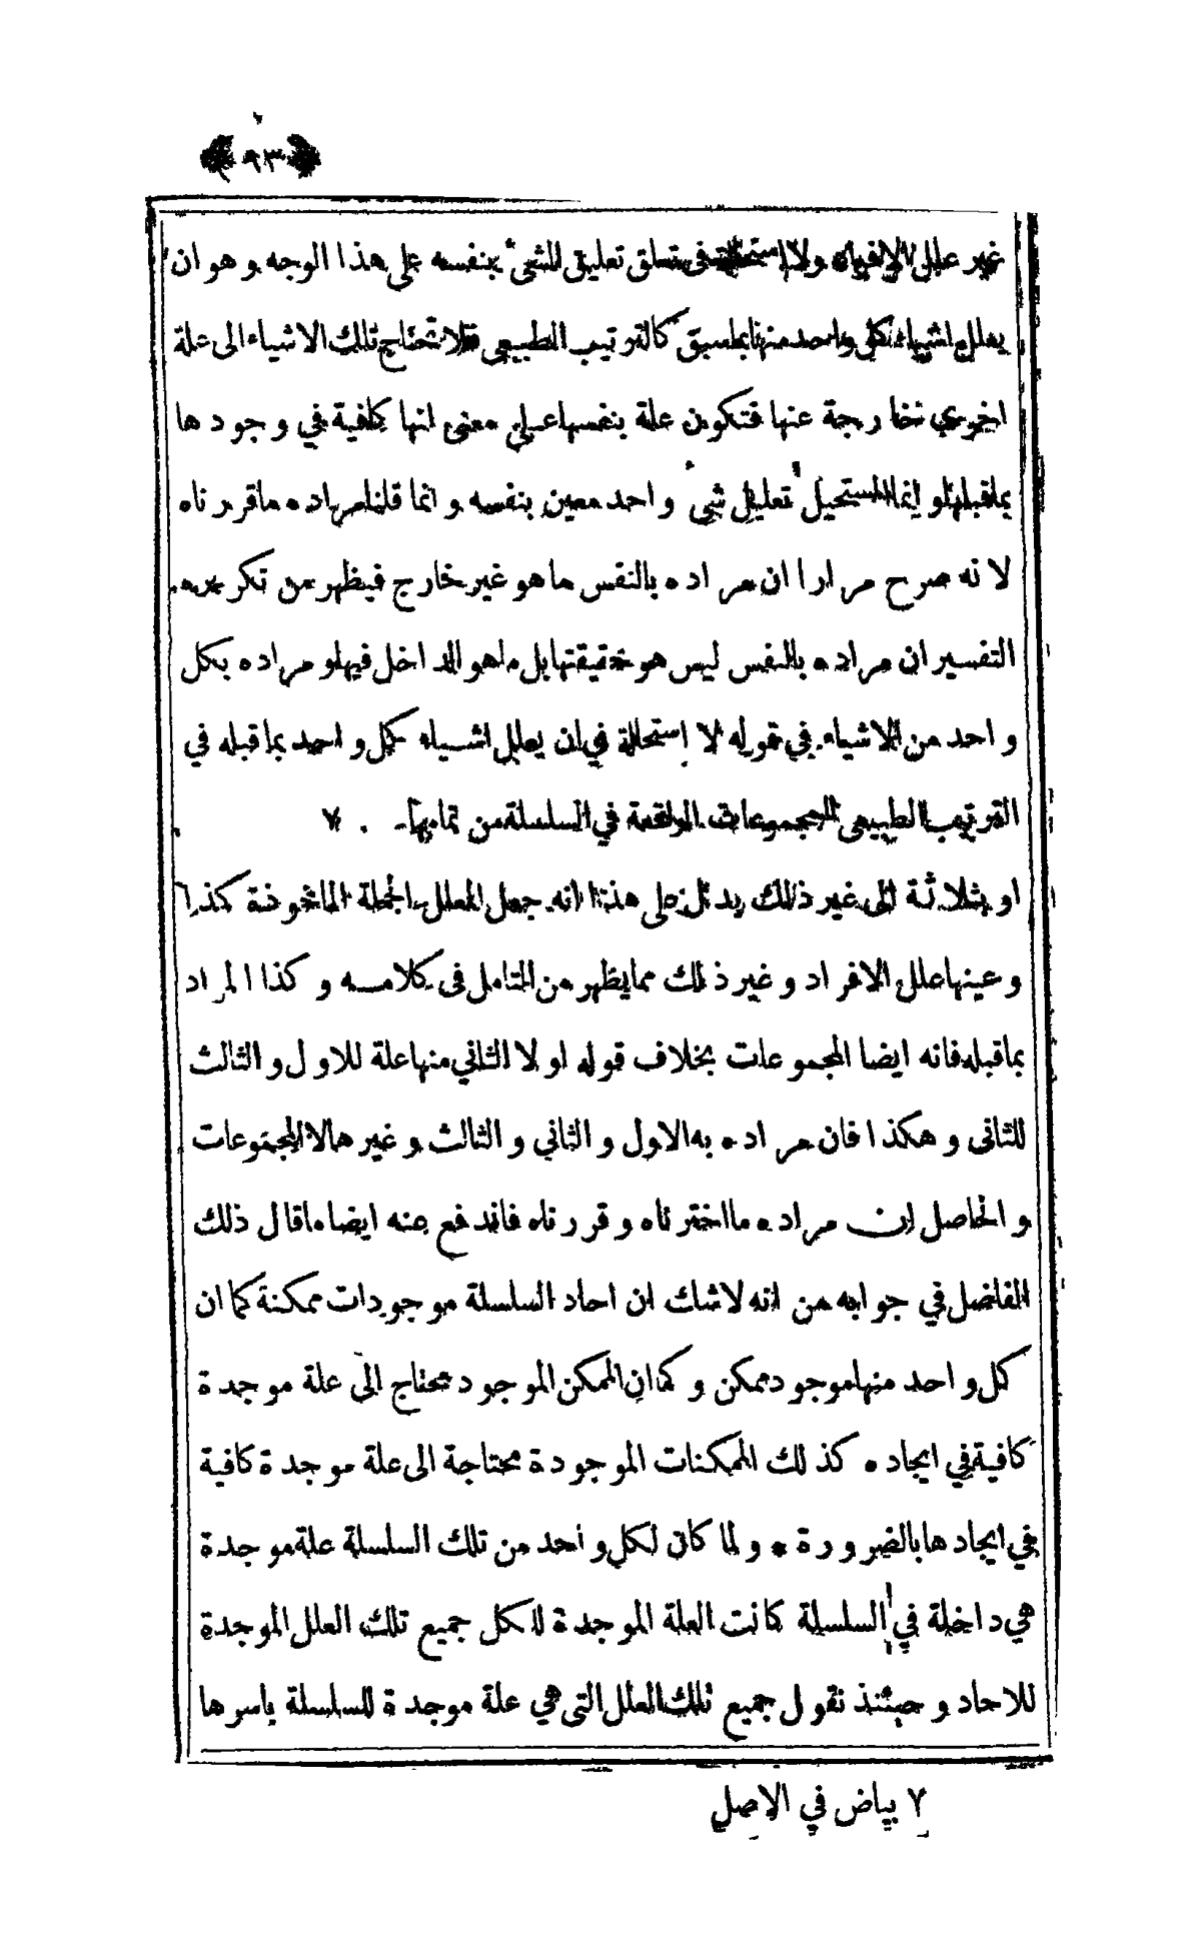 ﴿٩٣﴾
غير علل الافراد ولا استحالة في تعلق تعليق الشيء بنفسه على هذا الوجه و هو ان
يعلل اشياء كل واحد منها بما سبق كالترتيب الطبيعي فلا تحتاج تلك الاشياء الى علة
اخرى خارجة عنها فتكون علة بنفسها على معنى انها كافية في وجودها
بما قبلها و انما المستحيل تعليل شيء واحد معين بنفسه و انما قلنا مراده ما قررناه
لانه صرح مرارا ان مراده بالنفس ما هو غير خارج فيظهر من تكر
التفسير ان مراده بالنفس ليس هو حقيقتها بل ما هو الداخل فيها و مراده بكل
واحد من الاشياء في قوله لا استحالة في ان يعلل اشياء كل واحد بما قبله في
الترتيب الطبيعي المجموعات الواقعة في السلسلة من تمامها . ٧
او بثلاثة الى غير ذلك يدل على هذا انه جعل المعلل الجملة الماخوذة كذا
و عينها علل الافراد و غير ذلك مما يظهر من التامل في كلامه و كذا المراد
بما قبله فانه ايضا المجموعات بخلاف قوله اولا الثاني منها علة للاول و الثالث
للثاني و هكذا فان مراده به الاول و الثاني و الثالث و غيرها لا المجموعات
و الحاصل ان مراده ما اخترناه و قررناه فاندفع عنه ايضا ما قال ذلك
الفاضل في جوابه من انه لا شك ان احاد السلسلة موجودات ممكنة كما ان
كل واحد منها موجود ممكن و كما ان الممكن الموجود محتاج الى علة موجدة
كافية في ايجاده كذلك الممكنات الموجودة محتاجة الى علة موجدة كافية
في ايجادها بالضرورة * و لما كان لكل واحد من تلك السلسلة علة موجدة
هي داخلة في السلسلة كانت العلة الموجدة للكل جميع تلك العلل الموجدة
للاحاد و حينئذ نقول جميع تلك العلل التي هي علة موجدة للسلسلة باسرها
٧ بياض في الاصل